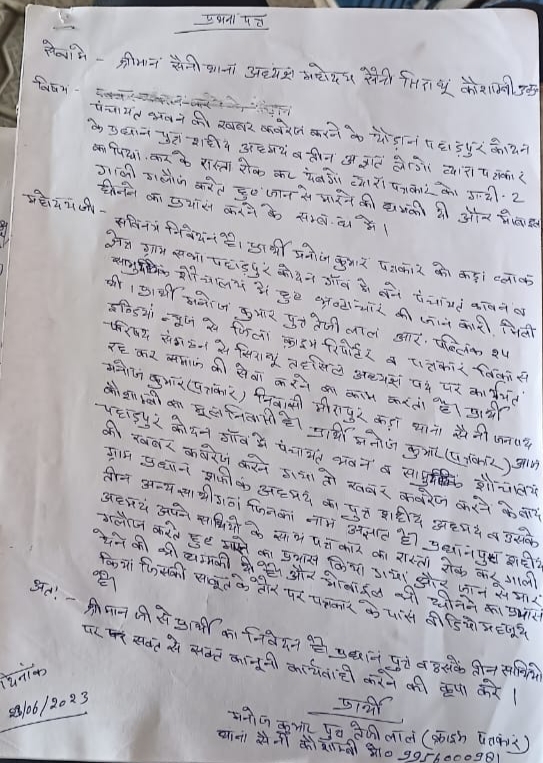 प्रार्थना पत्र
सेवा मे - श्रीमान सैनी थाना अध्यक्ष महोदय सैनी सिराथू कौशाम्बी
विषय -
पंचायत भवन की खबर कवरेज करने के दौरान पहाड़पुर कोदन
के प्रधान पुत्र शहीद अहमद व तीन अज्ञात लोगो द्वारा पत्रकार
का पिछा कर के रास्ता रोक कर दबंगो द्वारा पत्रकार को गन्दी-2
गाली गलौज करते हुए जान से मारने की धमकी दी और मोबाइल
छीनने का प्रयास करने के सम्बन्ध मे।
महोदय जी - सविनय निवेदन है। प्रार्थी मनोज कुमार पत्रकार को कड़ा ब्लाक
क्षेत्र ग्राम सभा पहाड़पुर कोदन गाँव मे बने पंचायत भवन व
सामुदायिक शौचालय मे हुए भ्रष्टाचार की जानकारी मिली
थी। प्रार्थी मनोज कुमार पुत्र तेजी लाल आर. पब्लिक 24
इन्डिया न्यूज से जिला क्राइम रिपोर्टर व पत्रकार विकास
परिषद संगठन से सिराथू तहसील अध्यक्ष पद पर कार्यरत
रह कर समाज की सेवा करने का काम करता है। प्रार्थी
मनोज कुमार (पत्रकार) निवासी मीरापुर कड़ा थाना सैनी जनपद
कौशाम्बी का मूल निवासी है। प्रार्थी मनोज कुमार (पत्रकार) ग्राम
पहाड़पुर कोदन गाँव मे पंचायत भवन व सामुदायिक शौचालय
की खबर कवरेज करने गया तो खबर कवरेज करने के बाद
ग्राम प्रधान शफीक अहमद का पुत्र शहीद अहमद व उसके
तीन अन्य साथीगण जिनका नाम अज्ञात है। प्रधान पुत्र शहीद
अहमद अपने साथियो के साथ पत्रकार का रास्ता रोक कर गाली
गलौज करते हुए का प्रयास किया गया और जान से मार
देने की भी धमकी दी है। और मोबाइल भी छीनने का प्रयास
किया जिसकी साबूत के तौर पर पत्रकार के पास वीडियो महफूज
है।
अतः - श्रीमान जी से प्रार्थी का निवेदन है प्रधान पुत्र व उसके तीन साथियो
पर सख्त से सख्त कानूनी कार्यवाही करने की कृपा करे।
दिनांक
23/06/2023
प्रार्थी
मनोज कुमार पुत्र तेजी लाल (क्राइम पत्रकार)
थाना सैनी कौशाम्बी मो० 9956000981